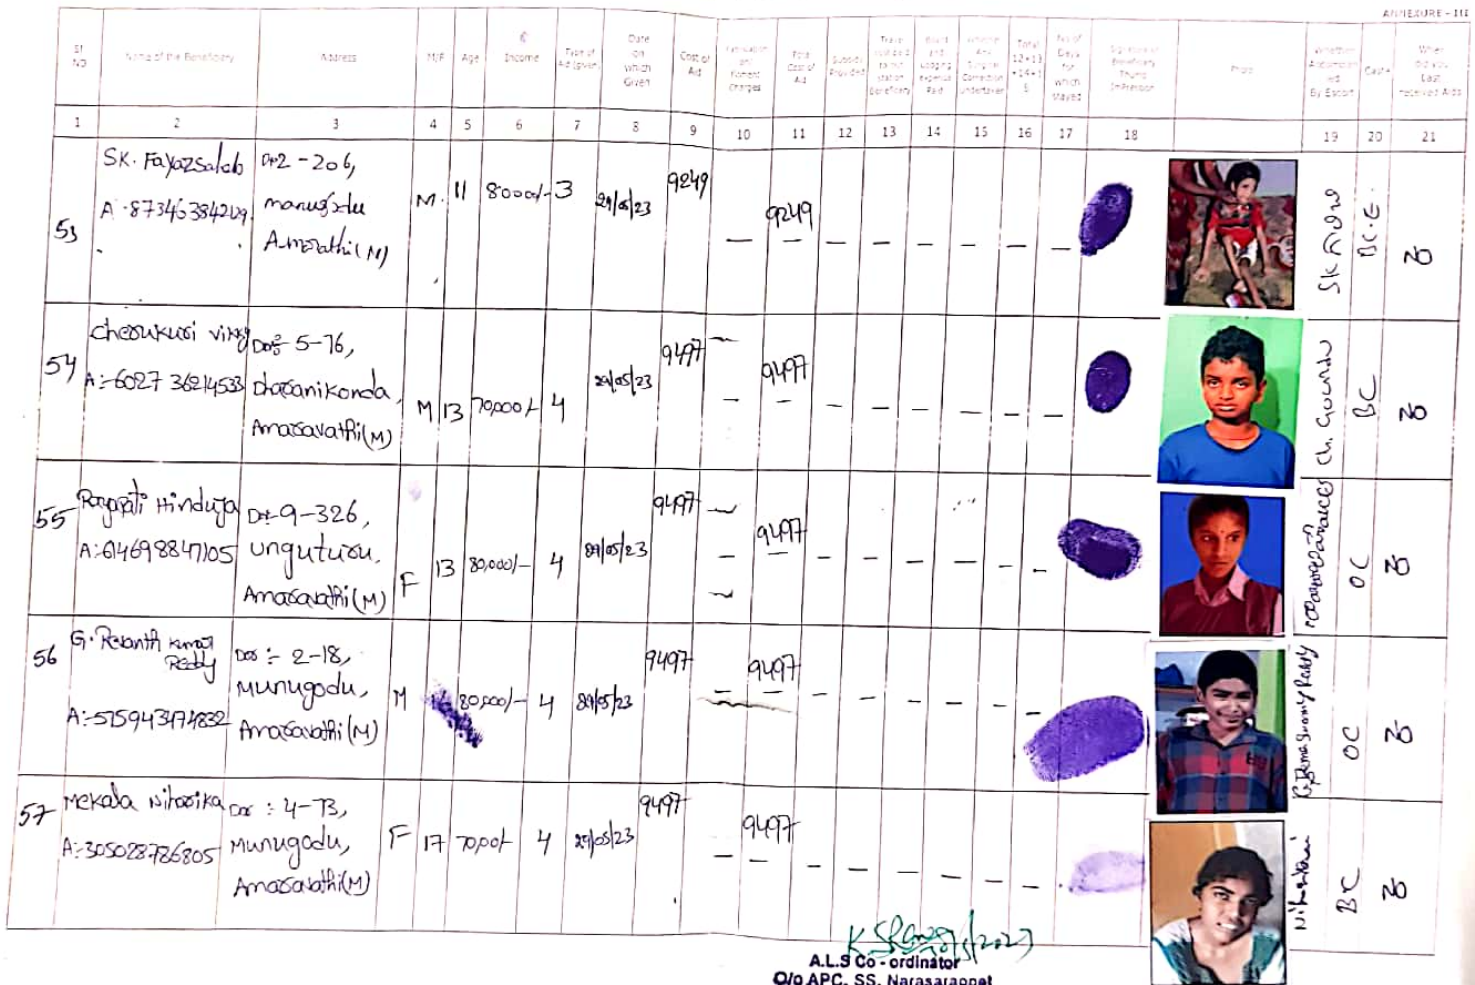 ANNEXURE - III
Sl NO
Name of the Beneficiary
Address
M/F
Age
Income
Type of Aid (given)
Date on which Given
Cost of Aid
Total Cost of Aid
Subsidy Provided
Board and Lodging expense Paid
Whether Any Surgical Correction undertaken
Total 12+13+14+15
No of Days for which stayed
Signature of Beneficiary Thumb Impression
Photo
Whether Accompanied By Escort
Caste
When did you Last received Aids
1 2 3 4 5 6 7 8 9 10 11 12 13 14 15 16 17 18 19 20 21
53
SK. Fayazsaleb
Dr 2-206,
M. 11 8000/- 3 29/05/23 9249 9249
BC-E.
No
Amarathi(M)
54
Cherukuri Vikky
A:-6027 36214533
Dr: 5-76,
dharanikonda,
Amaravathi(M)
M 13 70,000/- 4 29/05/23 9497 9497
Ch. Govindu
BC
No
55
Rayapati Hinduja
A:614698847105
Dr:-9-326,
unguturu,
Amaravathi(M)
F 13 80,000/- 4 29/05/23 9497 9497
OC
No
56
G. Revanth Kumar
Reddy
A:-515943474832
Dor :- 2-18,
Munugodu,
Amaravathi(M)
M 80,000/- 4 29/05/23 9497 9497
OC
No
57
Mekala Niharika
A:-305028786805
Dor : 4-73,
Munugodu,
Amaravathi(M)
F 17 70,00/- 4 29/05/23 9497 9497
Niharika
BC
No
A.L.S Co - ordinator
O/o APC, SS, Narasaraopet